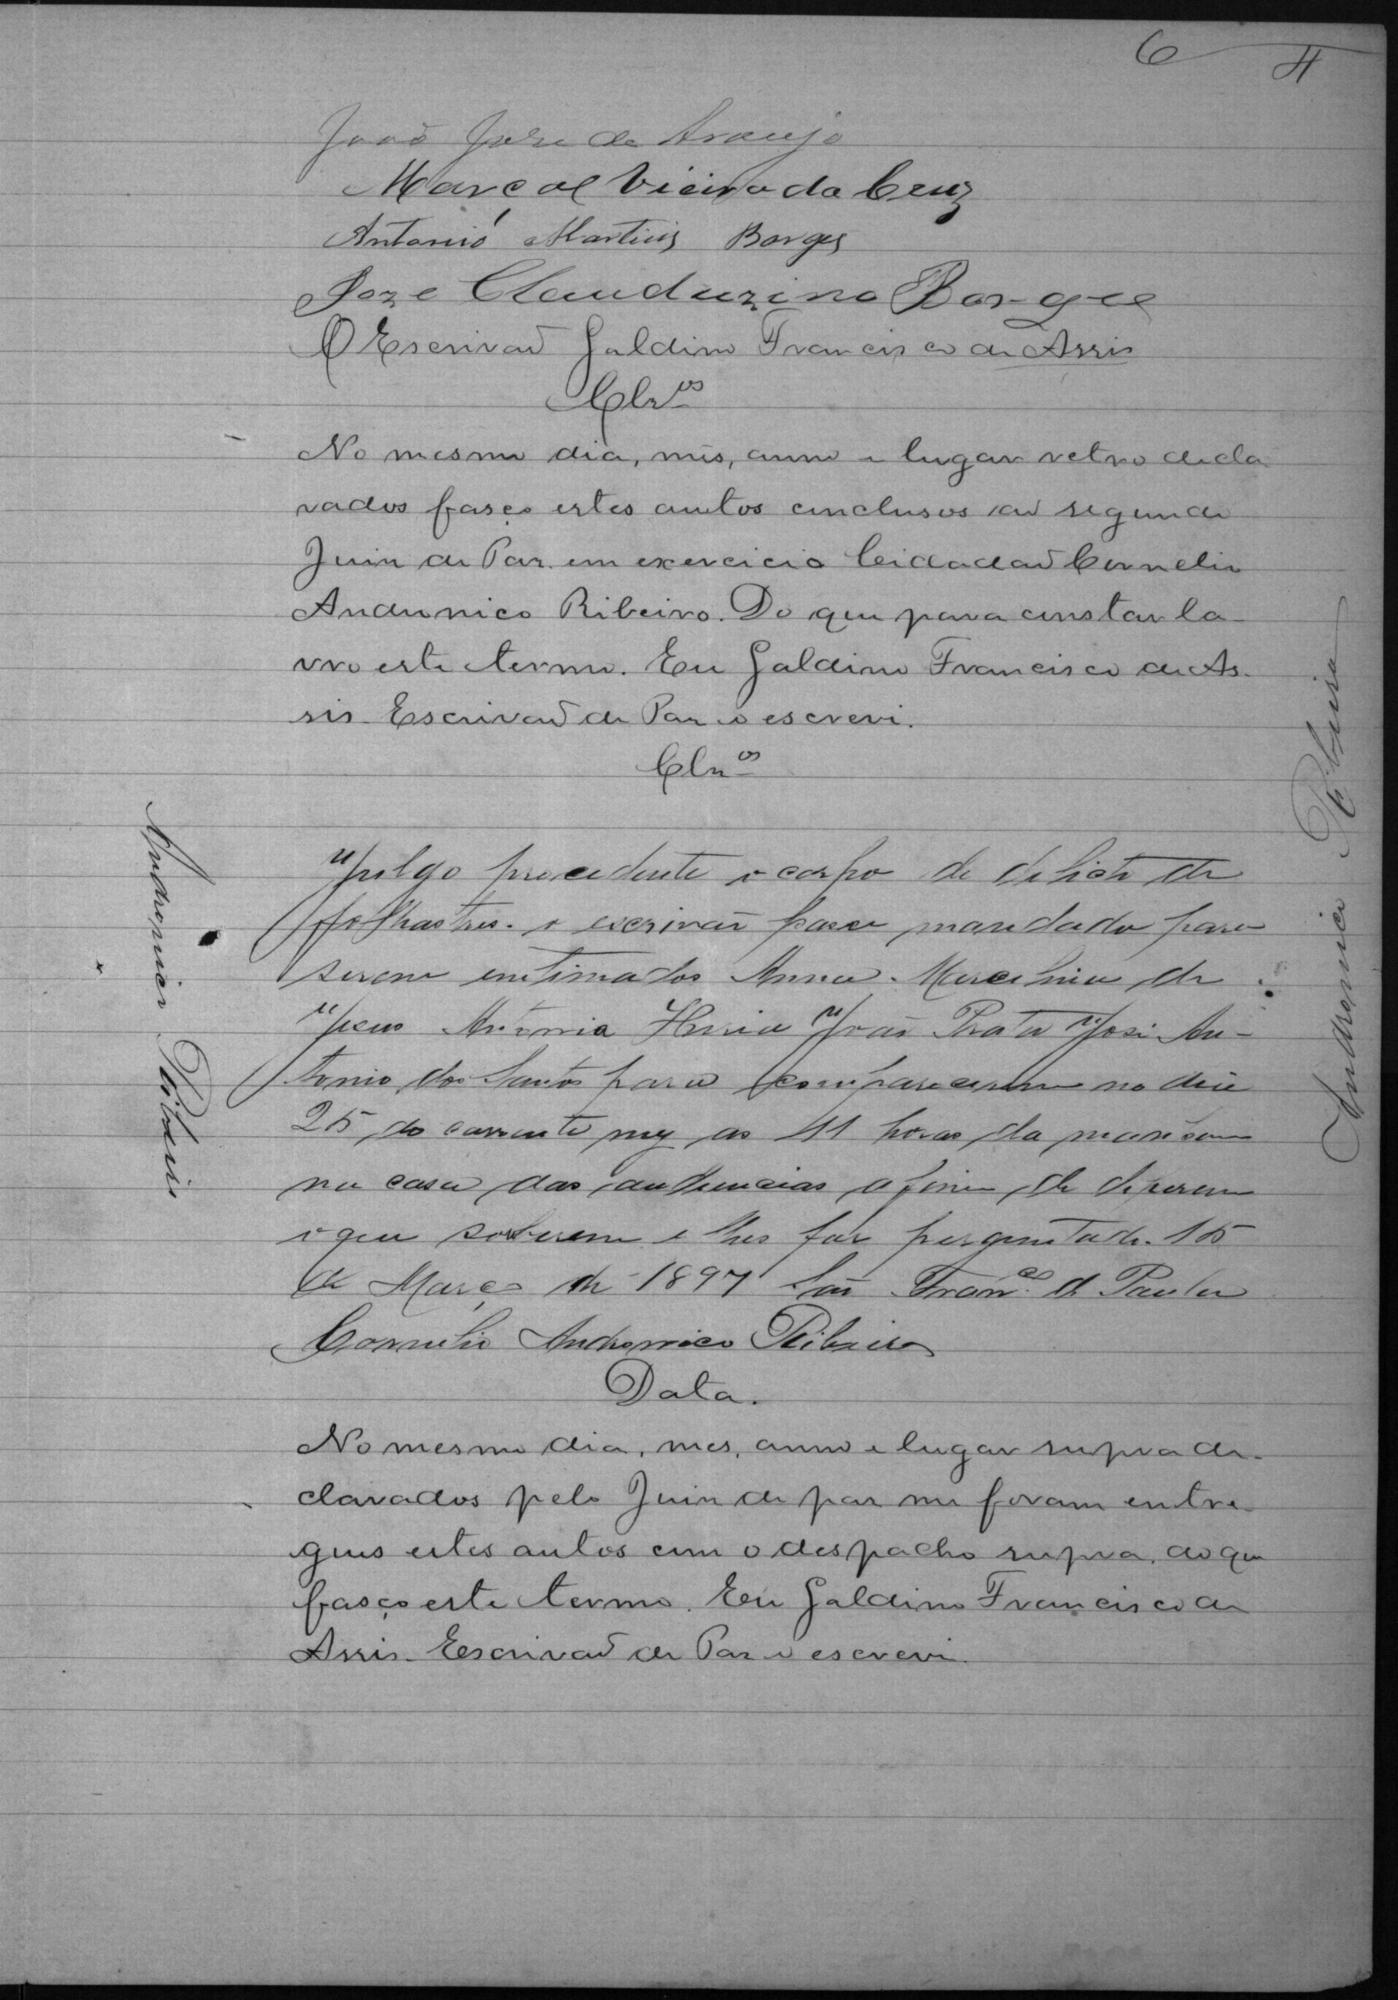 6 4
João José de Araujo
Marçal Vieira da Cruz
Antonio Martins Borges
Joze Clauduzino Borges
O Escrivaõ Galdino Francisco de Assis
Clz.os
No mesmo dia, mês, anno e lugar retro decla
rados fasço estes autos conclusos ao segundo
Juiz de Paz em exercicio Cidadaõ Cornelio
Andronico Ribeiro. Do que para constar la-
vro este termo. Eu Galdino Francisco de As-
sis Escrivaõ de Paz o escrevi.
Clz.os
Julgo procedente o corpo de delicto de
folhas tres. o escrivaõ passe mandado para
serem entimados Anna Marcelina de
Jesus Antonia Maria João Prata José An-
tonio dos Santos para comparecerem no dia
25 do corrente mez as 11 horas da manham
na casa das audiencias afim de diporem
o que soberem e lhes for perguntado. 15
de Março de 1897 Saõ Fran.co de Paula
Cornelio Andronico Ribeiro
Data.
No mesmo dia, mes, anno e lugar supra de-
clarados pelo Juiz de paz me foram entre-
gues estes autos com o despacho supra, do que
fasço este termo. Eu Galdino Francisco de
Assis. Escrivaõ de Paz o escrevi.
Andronico Ribeiro
Andronico Ribeiro